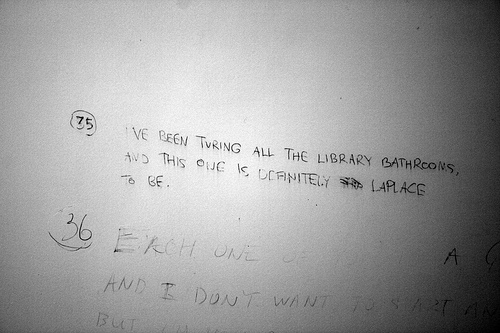 35 I'VE BEEN TURING ALL THE LIBRARY BATHROOMS,
AND THIS ONE IS DEFINITELY LAPLACE
TO BE.
36 EACH ONE OF A
AND I DON'T WANT TO START AN
BUT